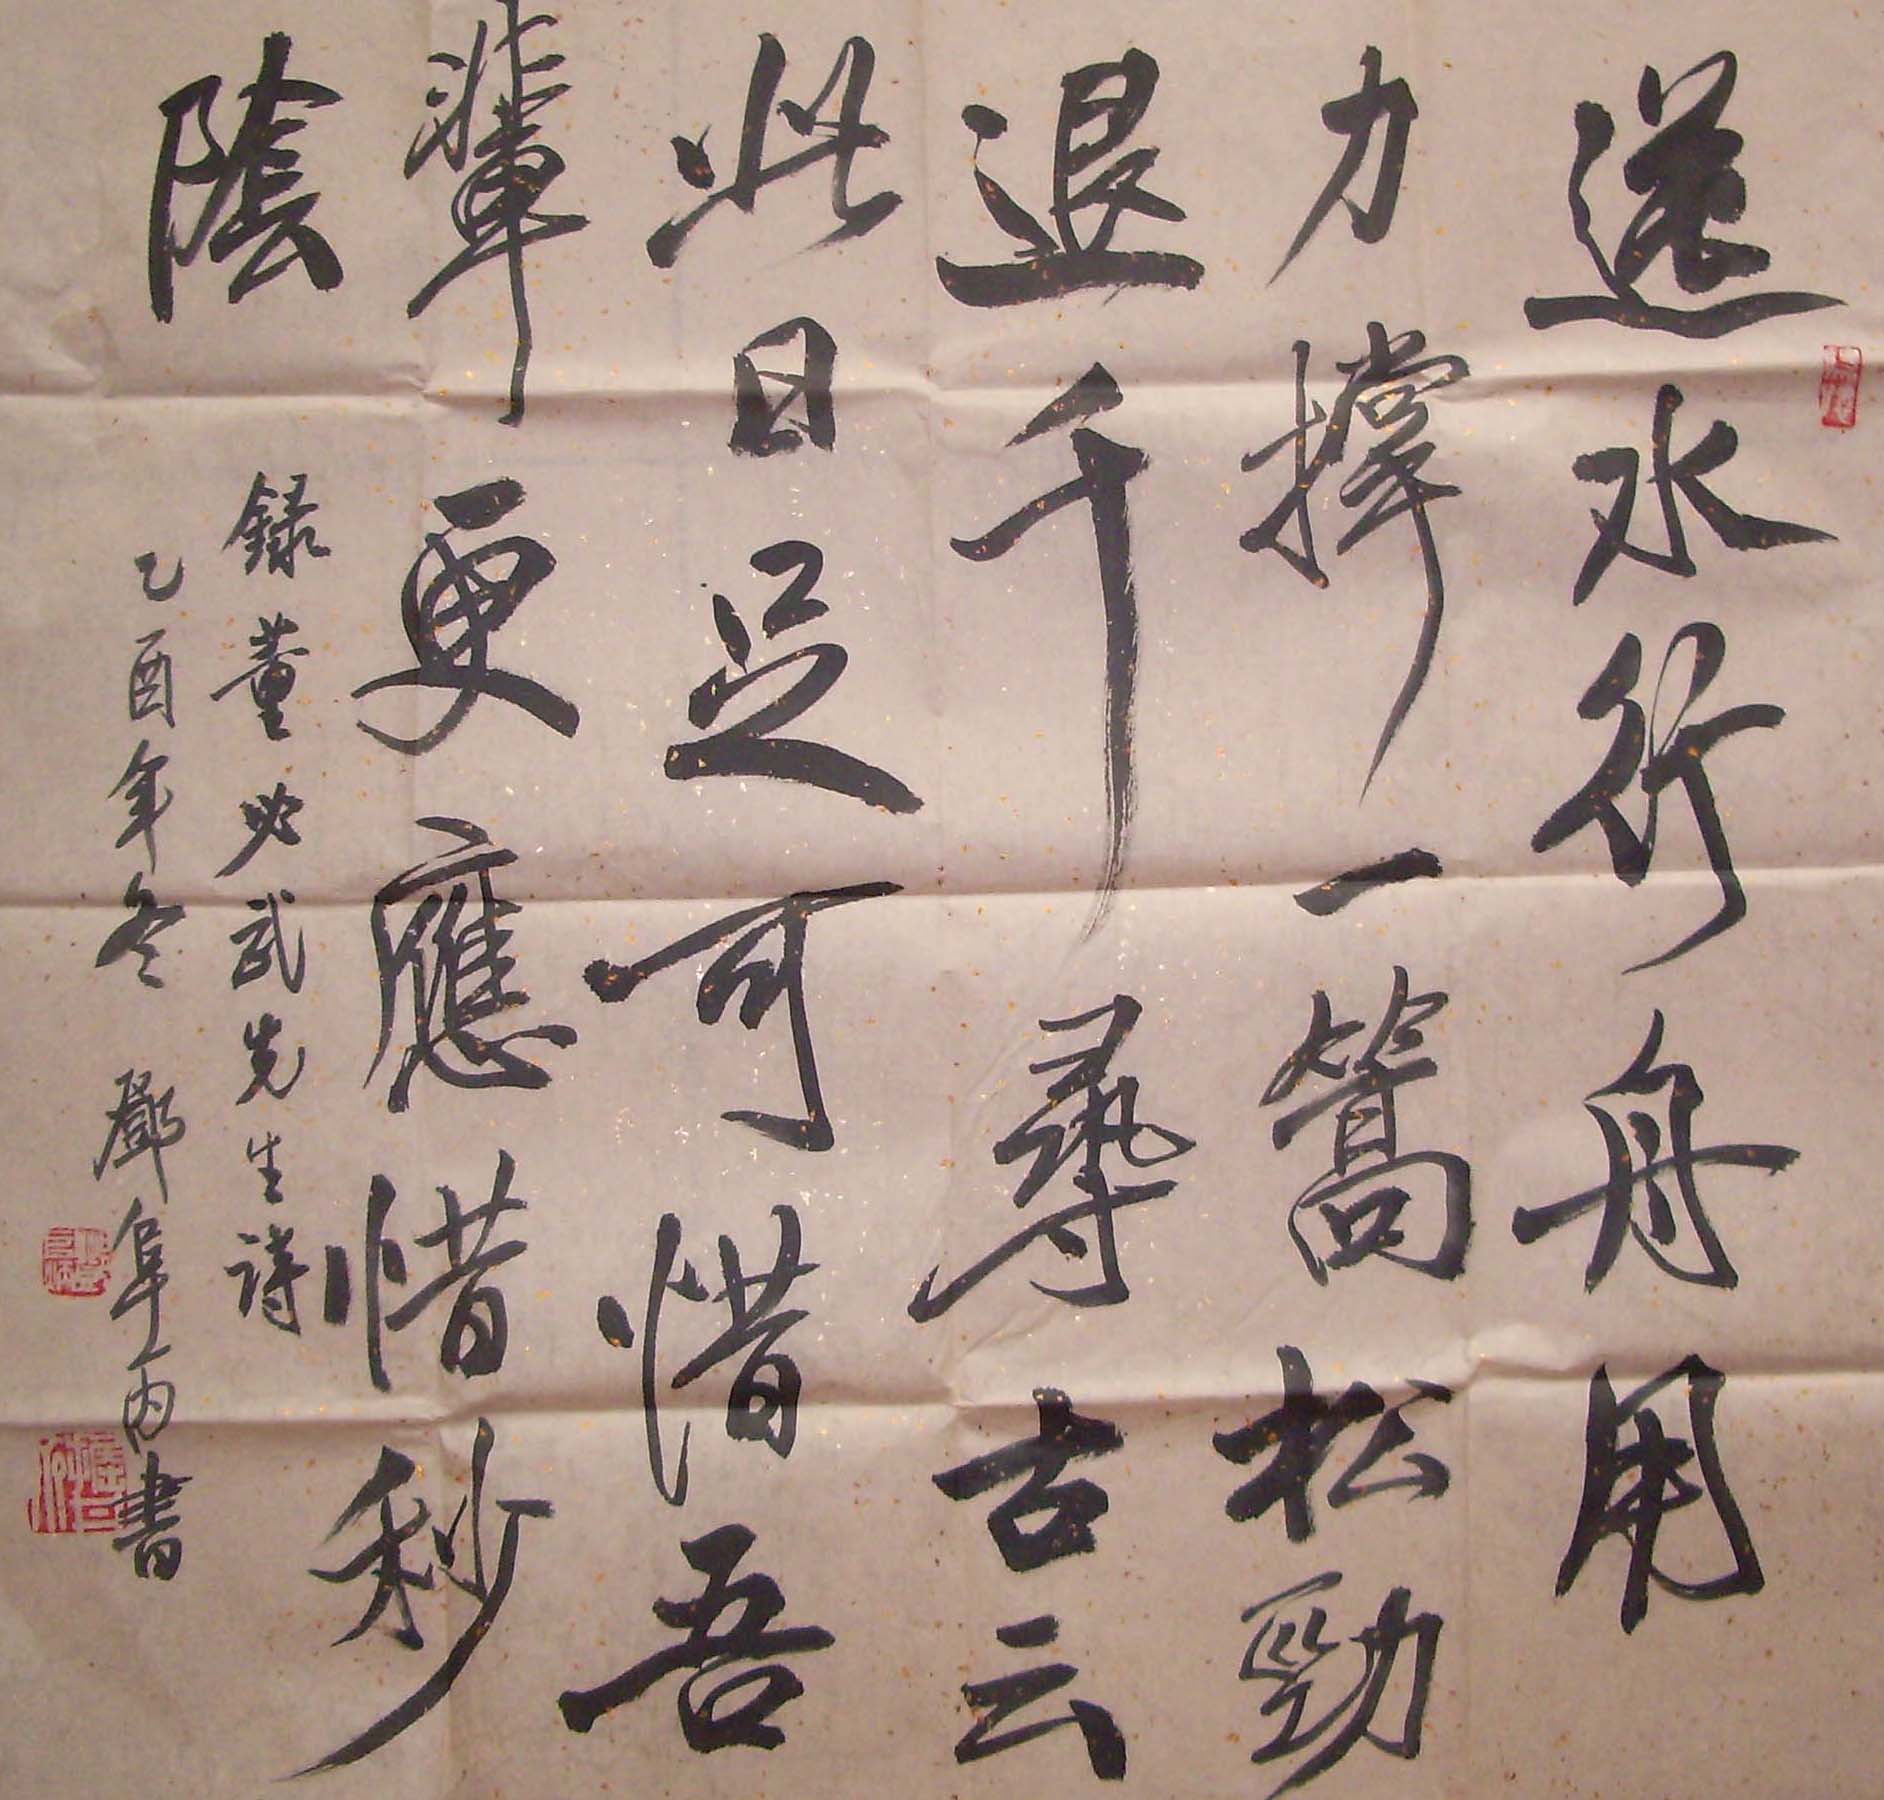 逆水行舟用
力撐一篙松勁
退千尋古云
此日足可惜吾
輩更應惜秒
陰
錄董必武先生詩
乙酉年冬 鄧阜丙書